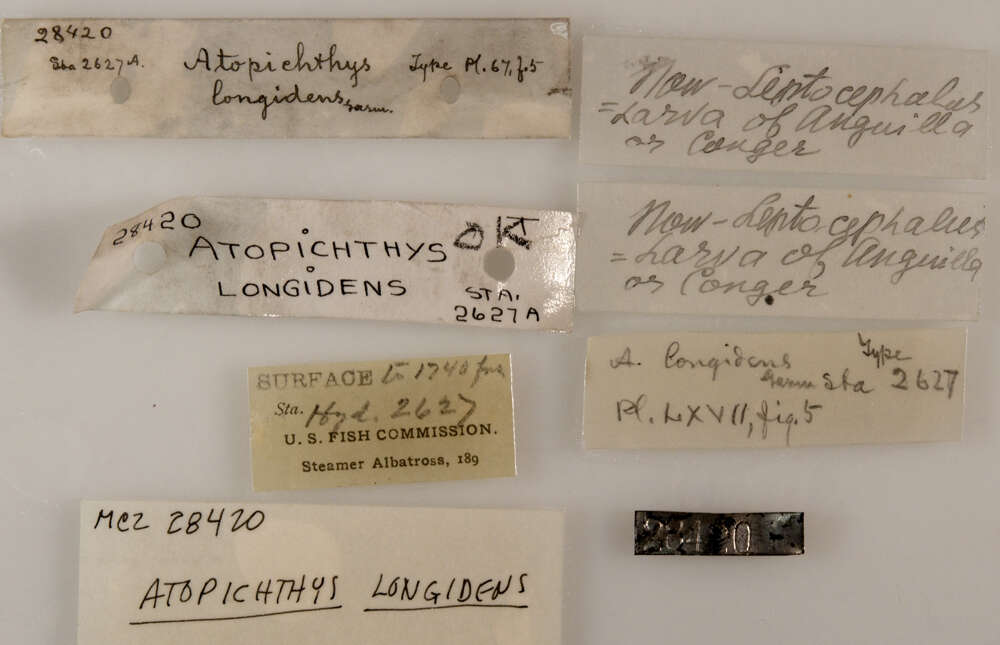 28420
Sta 2627 A. Atopichthys Type Pl. 67, f. 5
longidens Garm.
Now - Leptocephalus
= Larva of Anguilla
or Conger
28420
ATOPICHTHYS OK
LONGIDENS STA.
2627 A
Now - Leptocephalus
= Larva of Anguilla
or Conger
A. longidens Type
Garm Sta 2627
Pl. LXVII, fig. 5
SURFACE to 1740 fms
Sta. Hyd. 2627
U. S. FISH COMMISSION.
Steamer Albatross, 189
28420
MCZ 28420
ATOPICHTHYS LONGIDENS